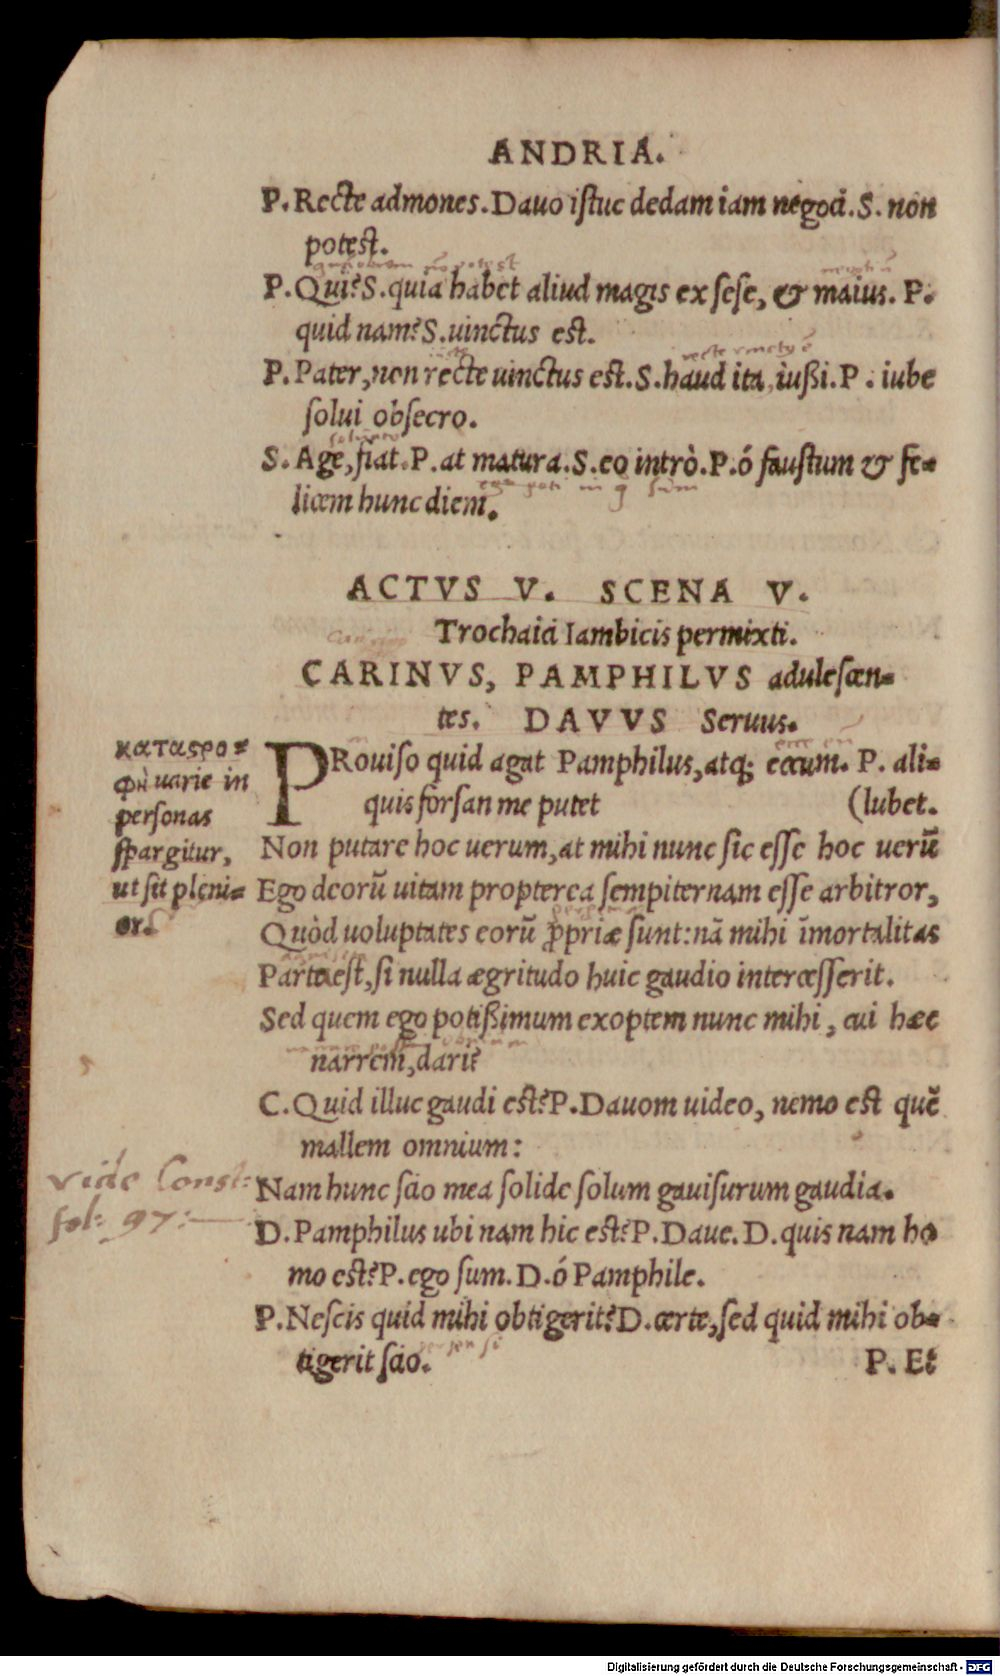 ANDRIA.
P. Recte admones. Dauo istuc dedam iam negoci. S. non
potest.
P. Qui? S. quia habet aliud magis ex sese, & maius. P.
quid nam? S. uinctus est.
recte vinctus ē
P. Pater, non recte uinctus est. S. haud ita iußi. P. iube
solui obsecro.
S. Age, fiat. P. at matura. S. eo intrò. P. ó faustum & fe-
licem hunc diem.
ACTVS V. SCENA V.
Trochaici Iambicis permixti.
CARINVS, PAMPHILVS adulescen-
tes. DAVVS Seruus.
καταςρο-
φὴ uarie in
personas
spargitur,
ut sit pleni-
or.
PRouiso quid agat Pamphilus, atq; eccum. P. ali-
quis forsan me putet (lubet.
Non putare hoc uerum, at mihi nunc sic esse hoc uerū
Ego deorū uitam propterea sempiternam esse arbitror,
Quòd uoluptates eorū ꝓpriæ sunt: nā mihi īmortalitas
Parta est, si nulla ægritudo huic gaudio intercesserit.
Sed quem ego potißimum exoptem nunc mihi, cui hæc
narrem, dari?
C. Quid illuc gaudi est? P. Dauom uideo, nemo est quē
mallem omnium:
vide Const:
fol: 97:
Nam hunc scio mea solide solum gauisurum gaudia.
D. Pamphilus ubi nam hic est? P. Daue. D. quis nam ho
mo est? P. ego sum. D. ó Pamphile.
P. Nescis quid mihi obtigerit? D. certe, sed quid mihi ob-
tigerit scio. P. Et
Digitalisierung gefördert durch die Deutsche Forschungsgemeinschaft - DFG